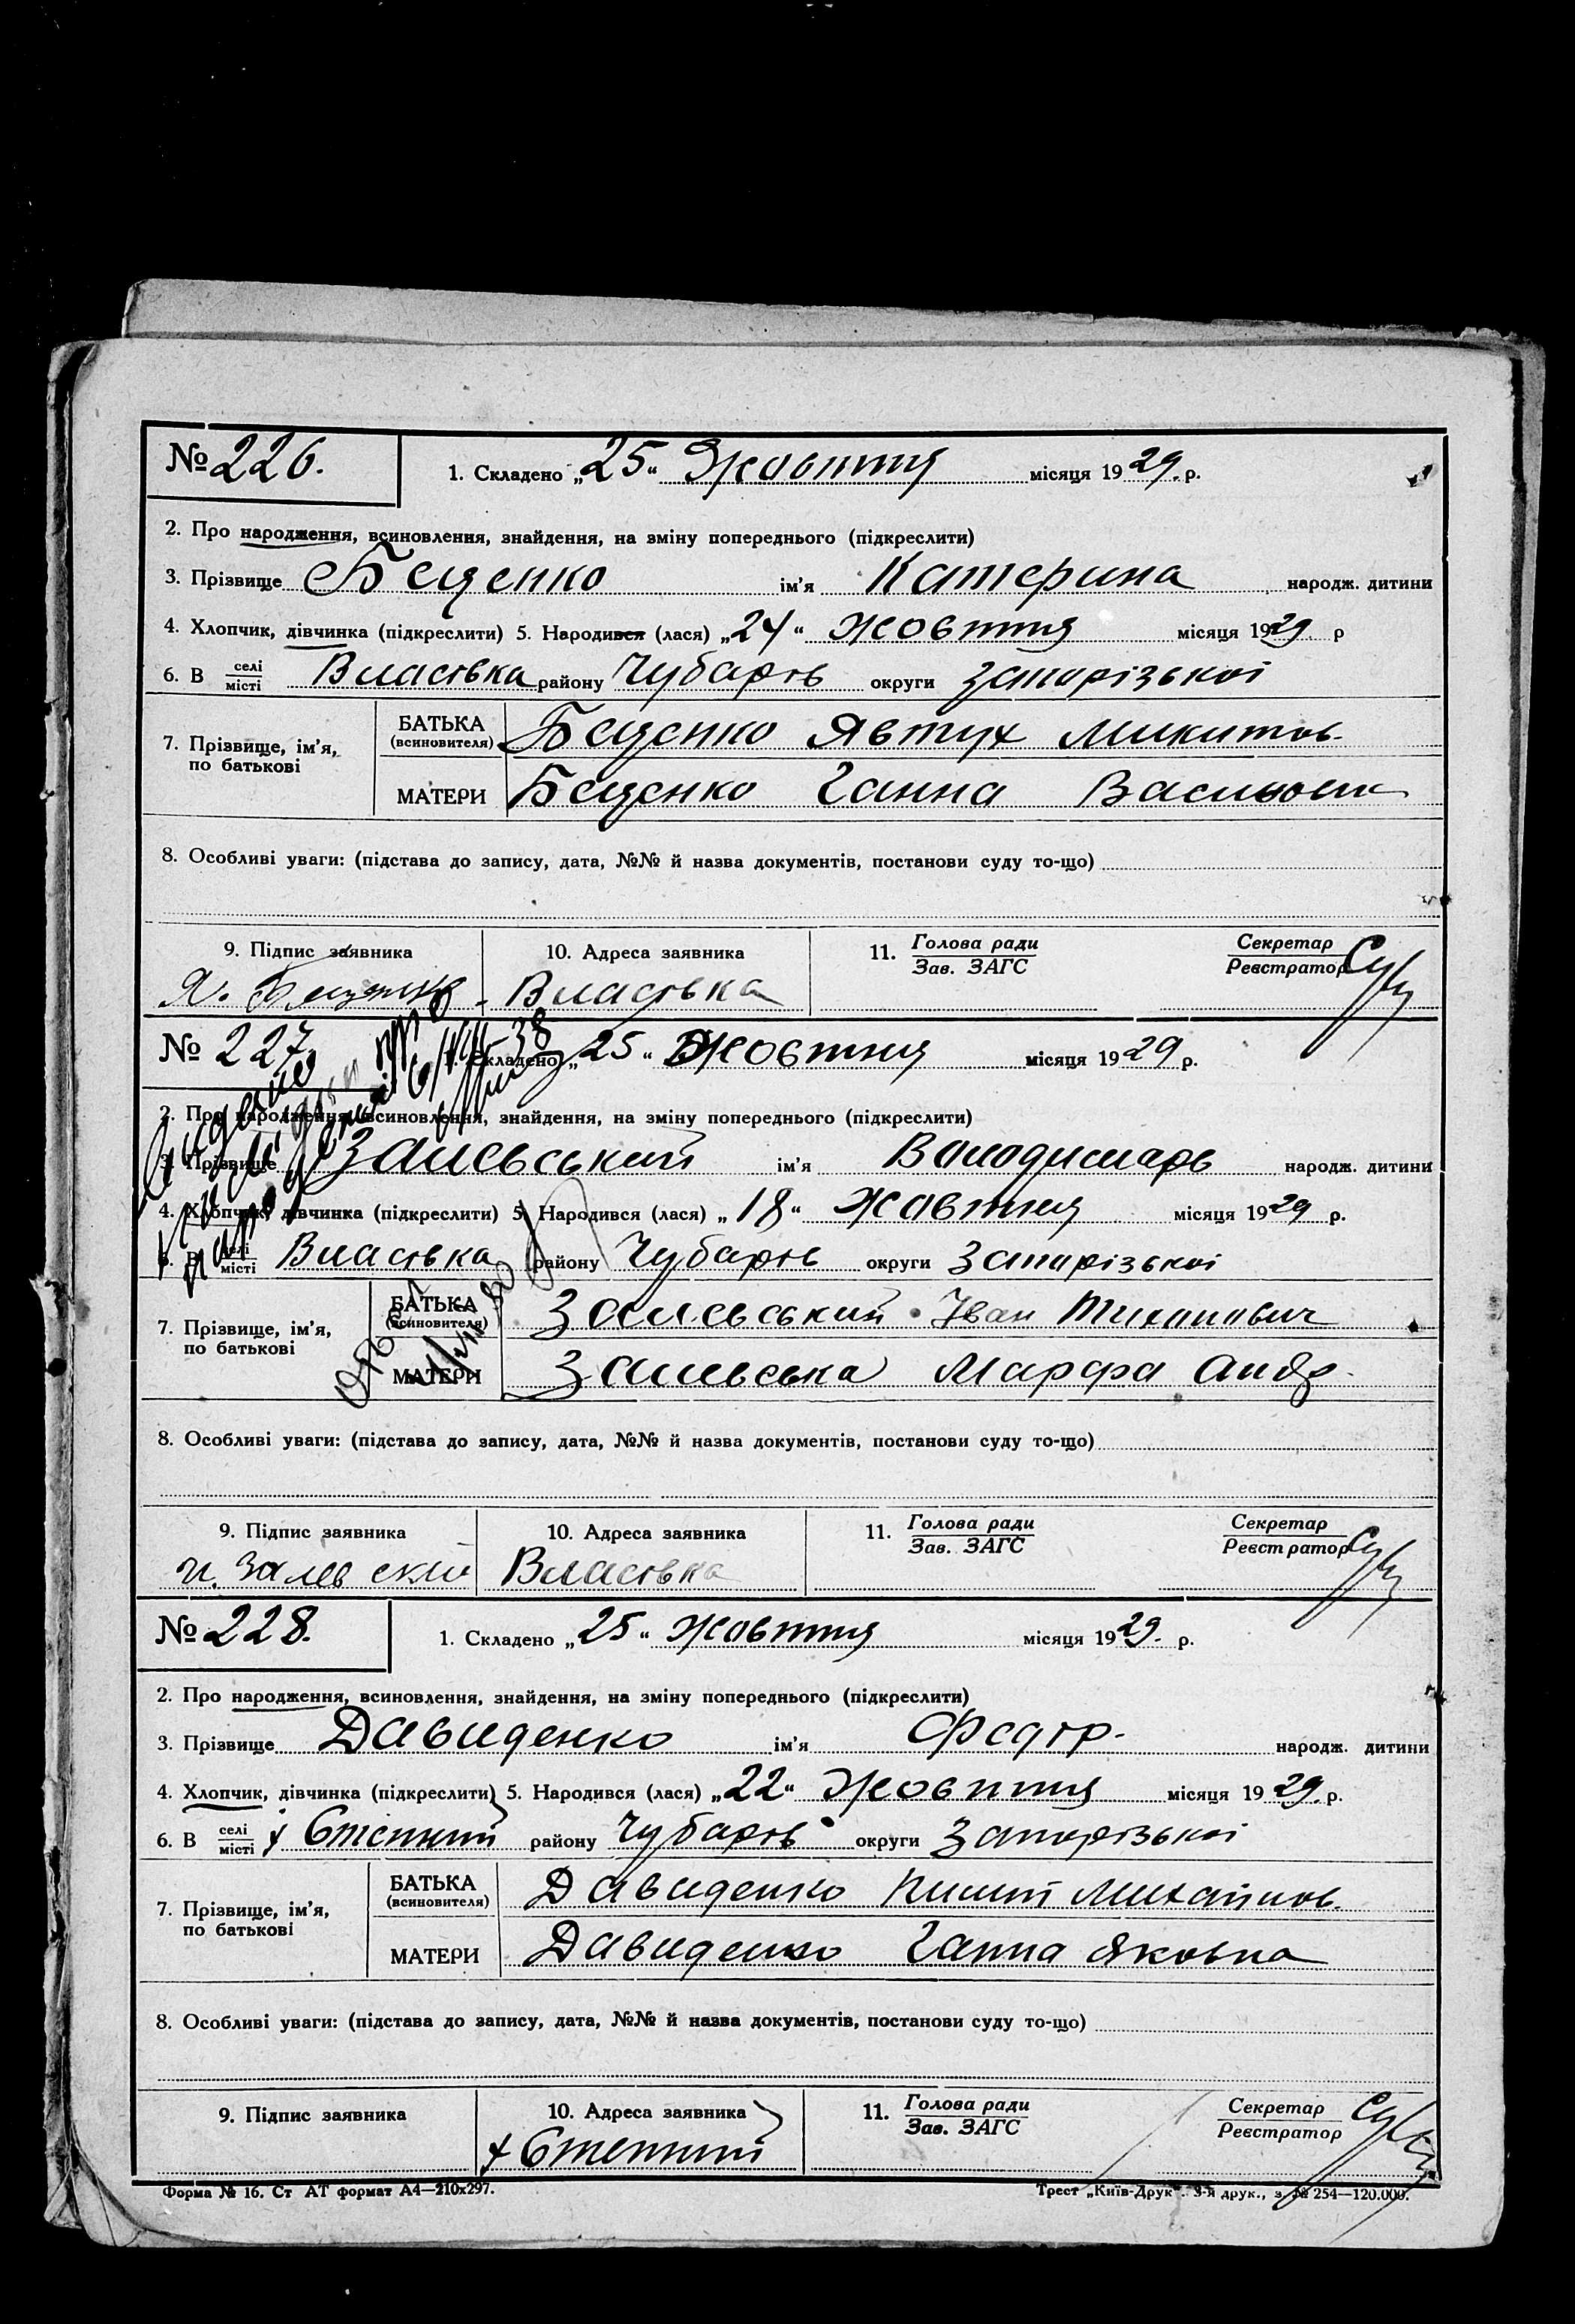 № 226. 1. Складено „25“ Жовтня місяця 1929. р.
2. Про народження, всиновлення, знайдення, на зміну попереднього (підкреслити)
3. Прізвище Беценко ім'я Катерина народж. дитини
4. Хлопчик, дівчинка (підкреслити) 5. Народився (лася) „24“ Жовтня місяця 1929. р
6. В селі місті Власівка району Чубарів округи Запорізької
7. Прізвище, ім'я, по батькові
БАТЬКА (всиновителя) Беценко Явтух Микитов.
МАТЕРИ Беценко Ганна
8. Особливі уваги: (підстава до запису, дата, №№ й назва документів, постанови суду то-що)
9. Підпис заявника 10. Адреса заявника 11. Голова ради Зав. ЗАГС Секретар Реєстратор
Я. Беценко Власівка
№ 227. 1. Складено „25“ Жовтня місяця 1929 р.
2. Про народження, всиновлення, знайдення, на зміну попереднього (підкреслити)
3. Прізвище Залевський ім'я Володимарь народж. дитини
4. Хлопчик, дівчинка (підкреслити) 5. Народився (лася) „18“ Жовтня місяця 1929 р.
6. В селі місті Власівка району Чубарів округи Запорізької
7. Прізвище, ім'я, по батькові
БАТЬКА (всиновителя) Залевський Іван Тихонович
МАТЕРИ Залевська Марфа Андр.
8. Особливі уваги: (підстава до запису, дата, №№ й назва документів, постанови суду то-що)
9. Підпис заявника 10. Адреса заявника 11. Голова ради Зав. ЗАГС Секретар Реєстратор
И. Залевский Власівка
№ 228. 1. Складено „25“ Жовтня місяця 1929. р.
2. Про народження, всиновлення, знайдення, на зміну попереднього (підкреслити)
3. Прізвище Давиденко ім'я Федір. народж. дитини
4. Хлопчик, дівчинка (підкреслити) 5. Народився (лася) „22“ Жовтня місяця 1929. р.
6. В селі місті х Степний району Чубарів округи Запорізької
7. Прізвище, ім'я, по батькові
БАТЬКА (всиновителя) Давиденко Михайлов.
МАТЕРИ Давиденко Ганна Яковна
8. Особливі уваги: (підстава до запису, дата, №№ й назва документів, постанови суду то-що)
9. Підпис заявника 10. Адреса заявника 11. Голова ради Зав. ЗАГС Секретар Реєстратор
х Степний
Форма № 16. Ст АТ формат А4—210х297. Трест „Київ-Друк“. 3-я друк., з. № 254—120.000.